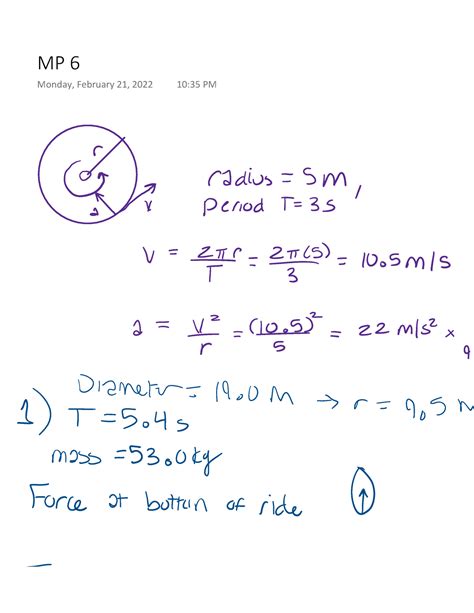 MP 6
Monday, February 21, 2022 10:35 PM
r
a
v
radius = 5m,
period T = 3s
v = 2πr/T = 2π(5)/3 = 10.5 m/s
a = v²/r = (10.5)²/5 = 22 m/s² x
9
1) Diameter = 19.0 M → r = 9.5 m
T = 5.4 s
mass = 53.0 kg
Force at bottom of ride